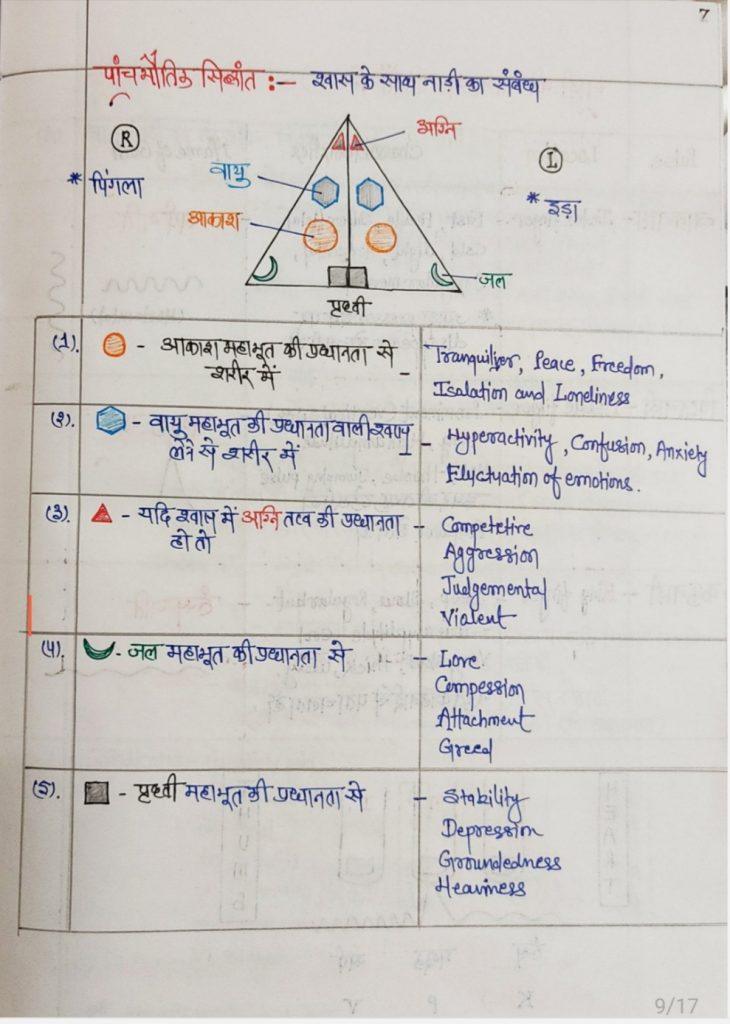 7
पांचभौतिक सिद्धांत :- श्वास के साथ नाड़ी का संबंध
R
अग्नि
L
* पिंगला
वायु
* इड़ा
आकाश
जल
पृथ्वी
(1). - आकाश महाभूत की प्रधानता से
शरीर में -
Tranquiler, Peace, Freedom,
Isolation and Loneliness
(२). - वायु महाभूत की प्रधानता वाली श्वास
लेने से शरीर में
- Hyperactivity, Confussion, Anxiety
Fluctuation of emotions.
(३). - यदि श्वास में अग्नि तत्व की प्रधानता
हो तो
- Competetive
Aggression
Judgemental
Violent
(४). - जल महाभूत की प्रधानता से
- Love
Compession
Attachment
Greed
(५). - पृथ्वी महाभूत की प्रधानता से
- Stability
Depression
Groundedness
Heaviness
9/17